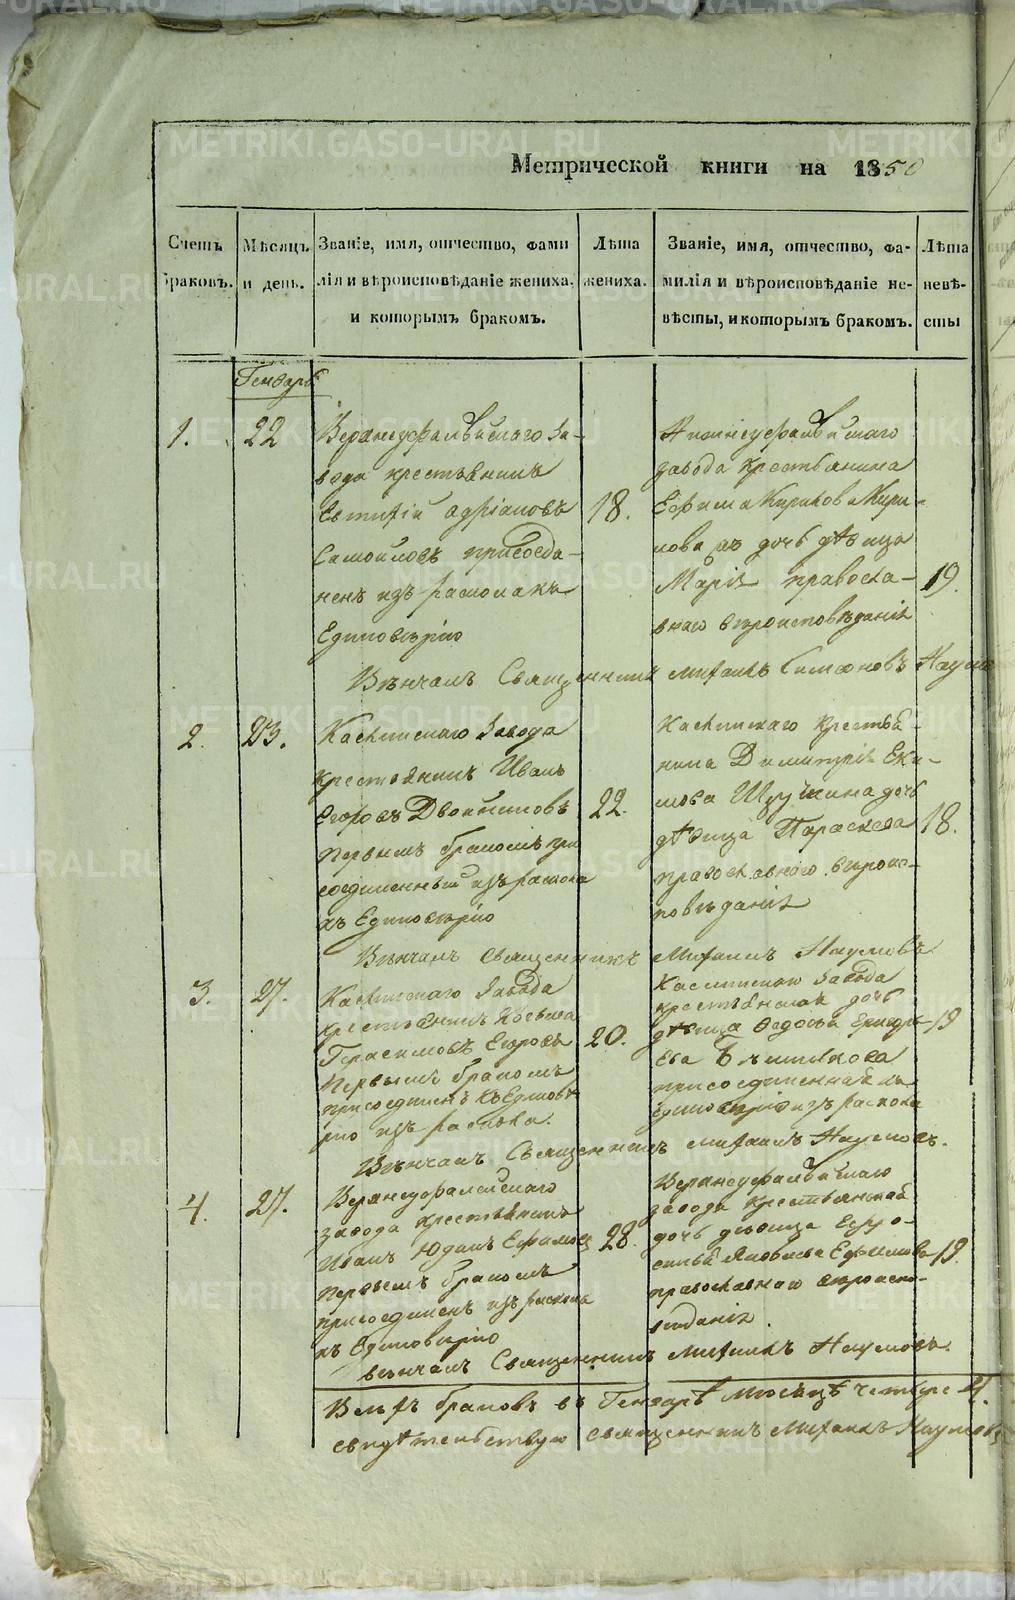 Метрической книги на 1850
Счетъ браковъ.
Мѣсяцъ и день.
Званіе, имя, отчество, фами
лія и вѣроисповѣданіе жениха,
и которымъ бракомъ.
Лѣта
жениха.
Званіе, имя, отчество, фа-
милія и вѣроисповѣданіе не-
вѣсты, и которымъ бракомъ.
Лѣта
невѣ-
сты
Генварь
1.
22
Верхнеуфалѣйскаго За-
вода крестьянинъ
Евтихій Адріановъ
Самойловъ присоеди-
ненъ изъ раскола къ
Единовѣрію
18.
Нижнеуфалѣйскаго
завода крестьянина
Ефима Кирилова Кири-
лова дочь дѣвица
Марія правосла-
внаго вѣроисповѣданія
19.
Вѣнчалъ Священникъ Михаилъ Симеоновъ Наумо
2.
23.
Каслинскаго Завода
крестьянинъ Иванъ
Егоровъ Двойниковъ
Первымъ бракомъ при
соединенный изъ раскола
къ Единовѣрію
22.
Каслинскаго крестья-
нина Димитрія Еки-
мова Щукина дочь
дѣвица Параскева
православнаго вѣроис-
повѣданія
18.
Вѣнчалъ Священникъ Михаилъ Наумовъ
3.
27.
Каслинскаго Завода
крестьянинъ
Герасимовъ Егоровъ
Первымъ бракомъ
присоединенъ къ Единовѣ
рію изъ раскола.
20.
Каслинскаго Завода
крестьянская дочь
дѣвица Ѳедосья Григорь-
ева
присоединенная къ
единовѣрію изъ раскола
19
Вѣнчалъ Священникъ Михаилъ Наумовъ.
4.
27.
Верхнеуфалейскаго
завода крестьянинъ
Иванъ Юдинъ Ефимовъ
Первымъ бракомъ
присоединенъ изъ раскола
къ Единовѣрію
28.
Верхнеуфалѣйскаго
завода крестьянская
дочь дѣвица Ефро-
синья Яковлева Ефимова
православнаго вѣроиспо-
вѣданія.
19.
вѣнчалъ Священникъ Михаилъ Наумовъ.
Всѣхъ браковъ въ Генварѣ мѣсяцѣ четыре 4.
свидѣтельствую Священникъ Михаилъ Наумовъ
METRIKI.GASO-URAL.RU